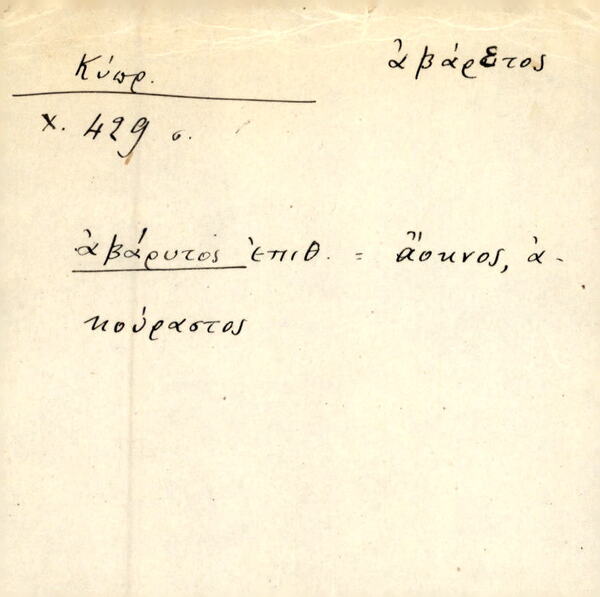 Κύπρ.
ἀβάρετος
χ. 429 σ.
ἀβάρυτος ἐπιθ. = ἄοκνος, ἀ-
κούραστος